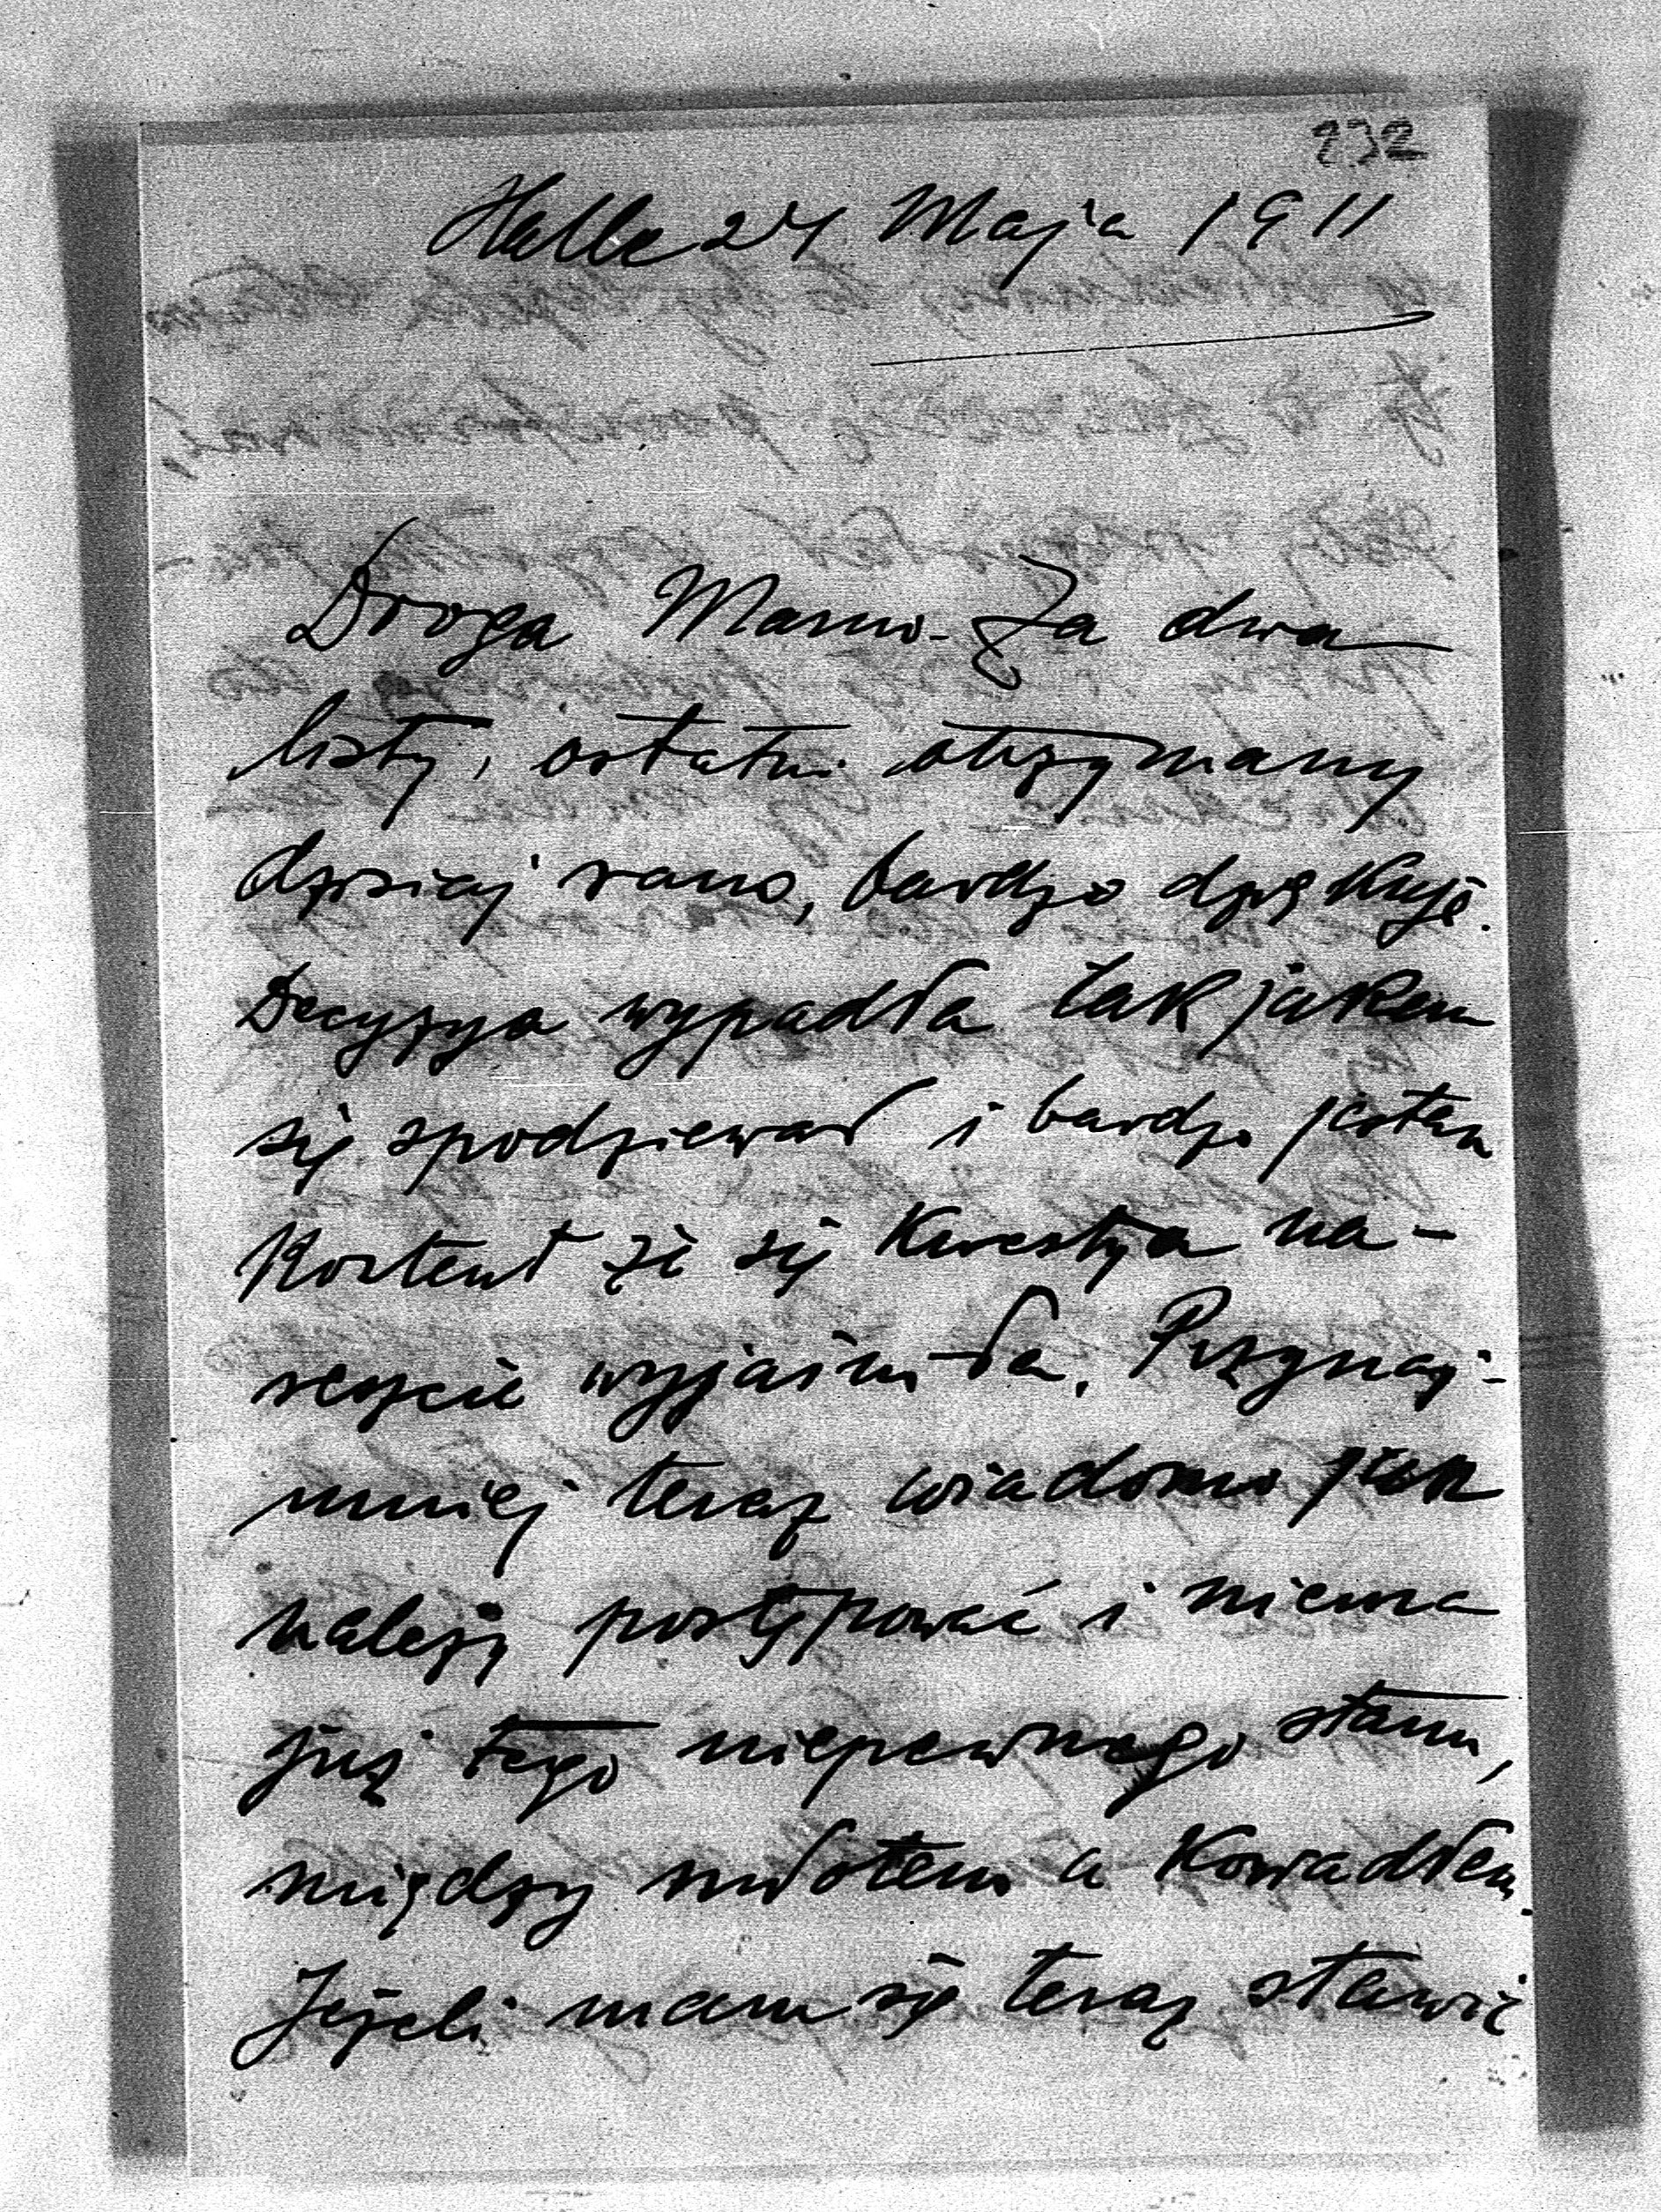 232
Halle 24 Maja 1911
Droga Mamo. Za dwa
listy, ostatni otrzymany
dzisiaj rano, bardzo dziękuję.
Decyzya wypadła tak jakem
się spodziewał i bardzo jestem
Kontent że się Kwestya na-
reszcie wyjaśniła. Przynaj-
mniej teraz wiadomo jak
należy postępować i niema
już tego niepewnego stanu,
między młotem a Kowadłem.
Jeżeli mam się teraz stawić